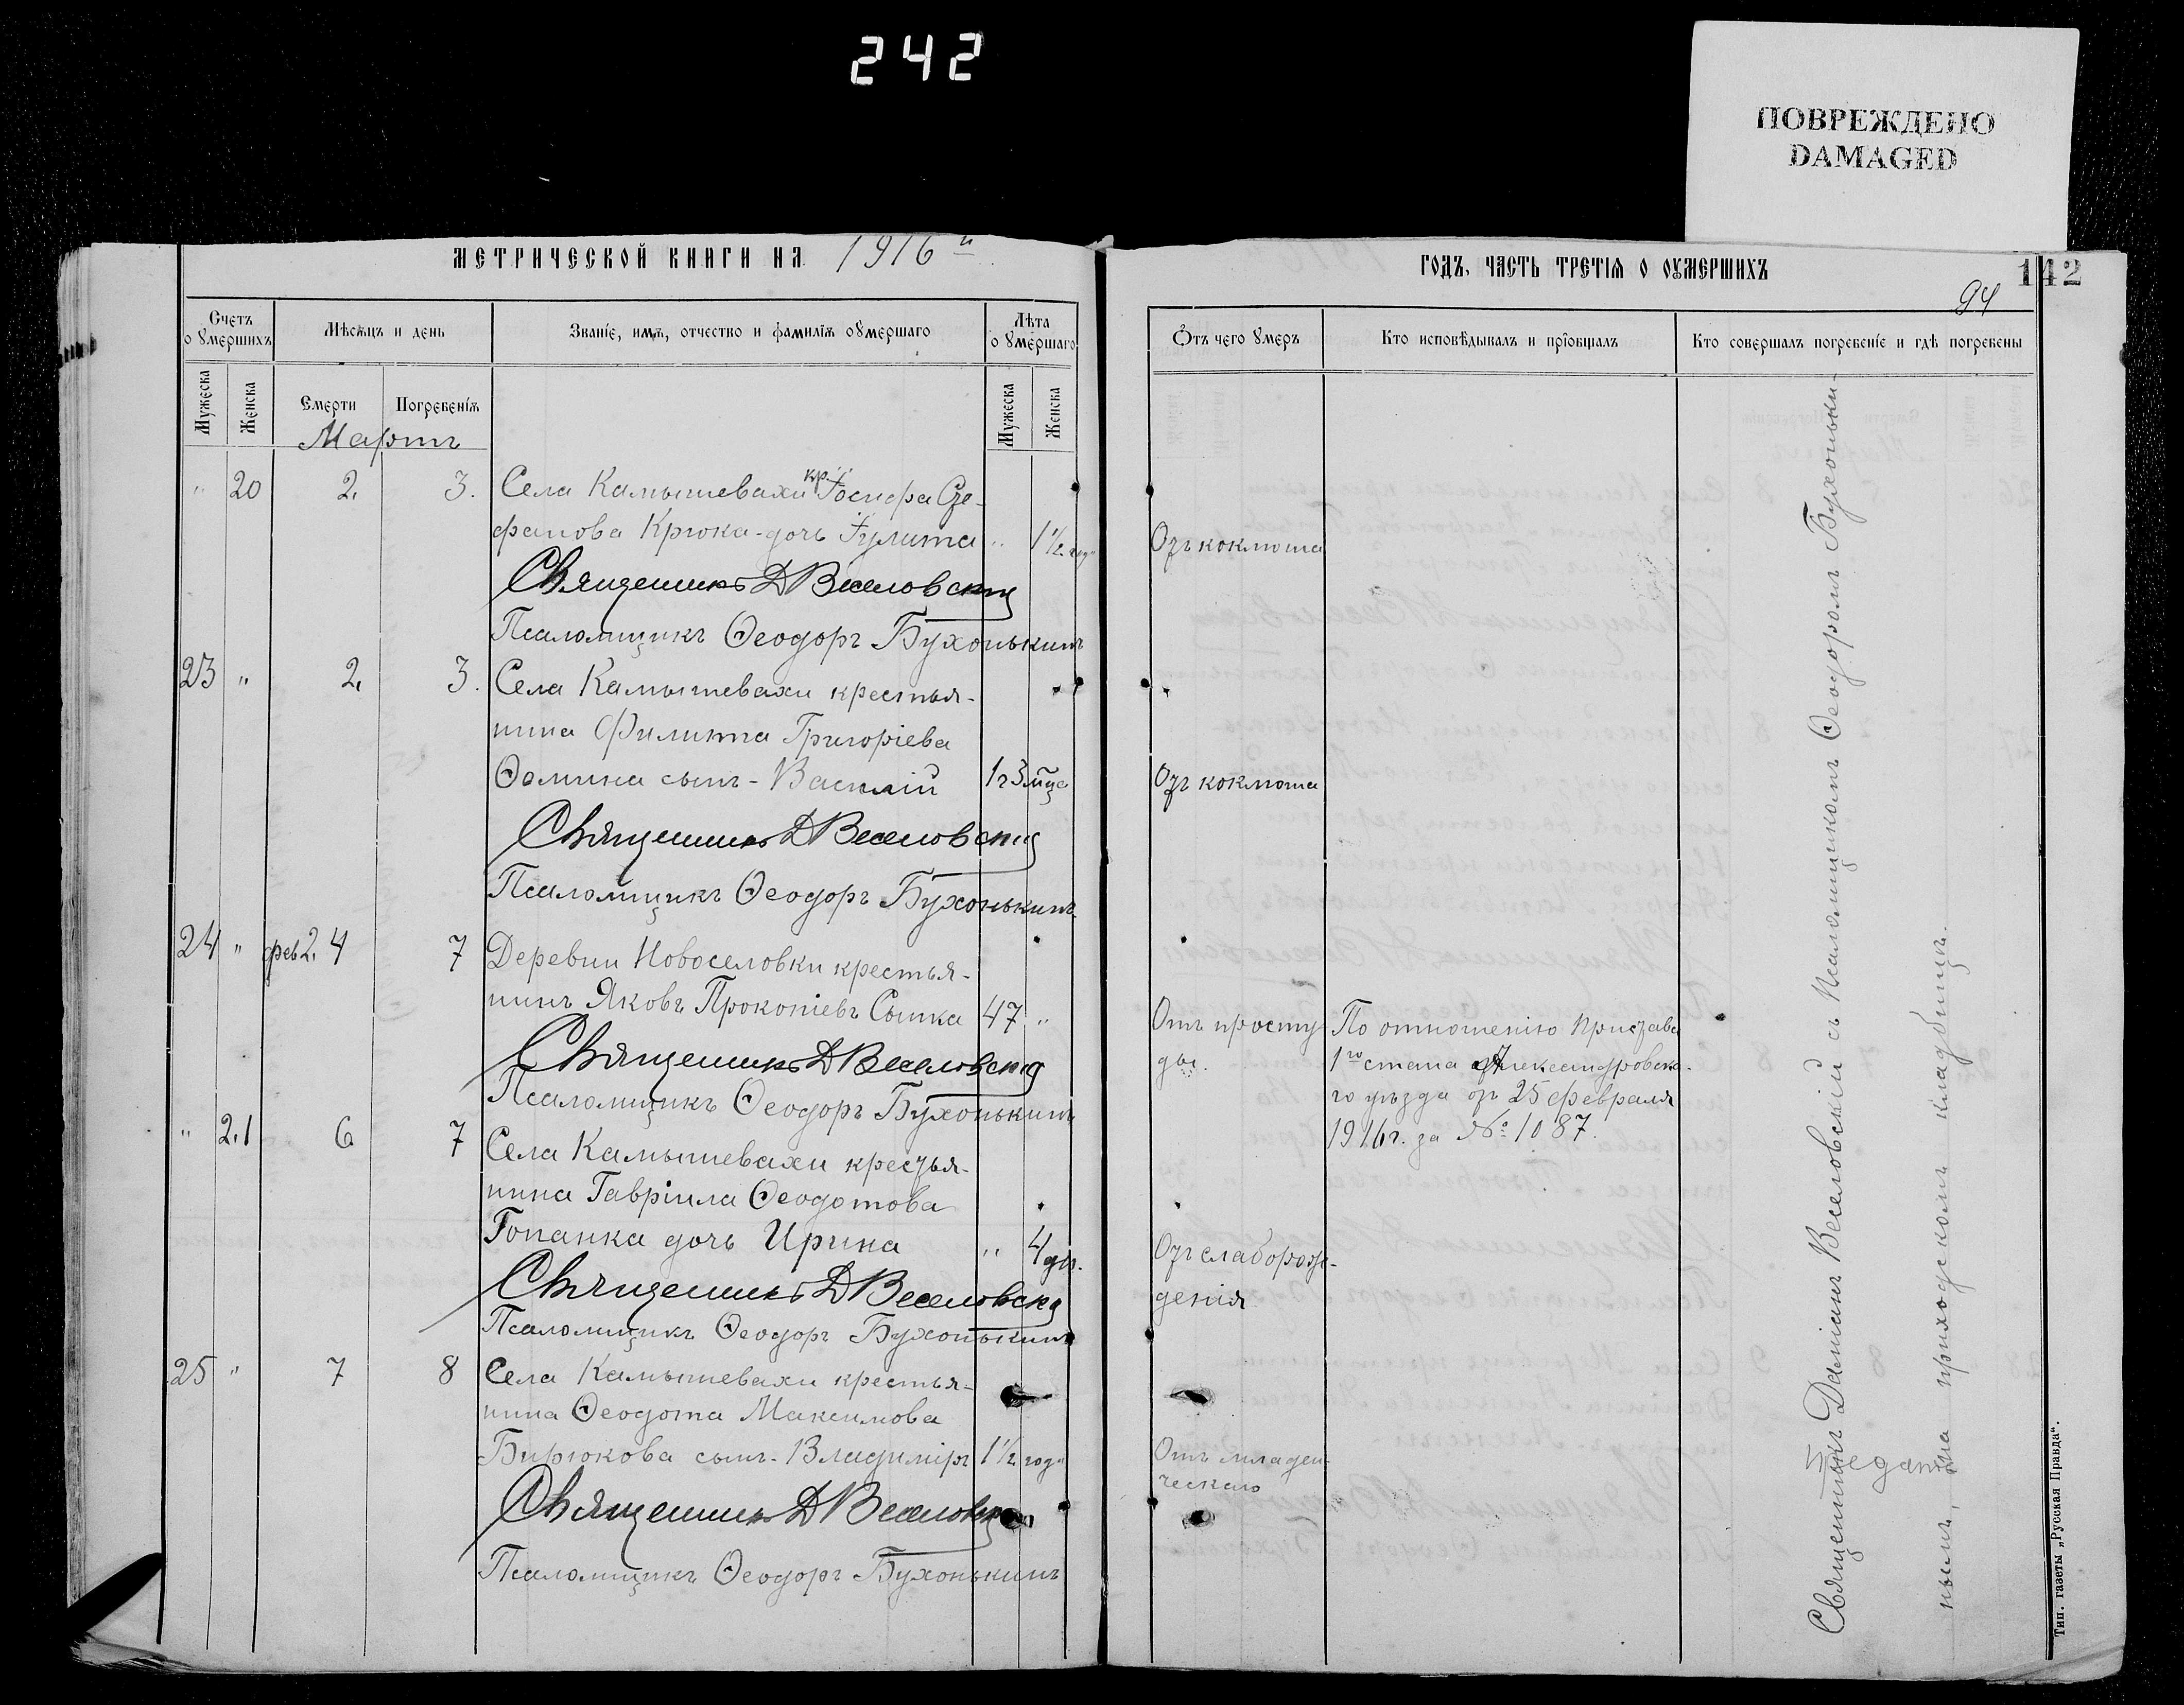 242
ПОВРЕЖДЕНО
DAMAGED
МЕТРИЧЕСКОЙ КНИГИ НА 1916й
ГОДЪ, ЧАСТЬ ТРЕТІѦ О ОУМЕРШИХЪ
142
94
Счетъ о умершихъ
Мѣсѧцъ и день
Званіе, имѧ, отчество и фамиліѧ оумершаго
Лѣта о умершаго
Ѿтъ чего умеръ
Кто исповѣдывалъ и пріобщалъ
Кто совершалъ погребеніе и гдѣ погребены
Мужеска
Женска
Смерти
Погребеніѧ
Мужеска
Женска
Мартъ
" 20 2. 3. Села Камышевахи кр. Іосифа Сте-
фанова Крюка - дочь Іулита " 1½ год. Отъ коклюша
Священникъ Д Веселовскій
Псаломщикъ Ѳеодоръ Бухонькинъ
23 " 2. 3. Села Камышевахи крестья-
нина Филиппа Григоріева
Ѳомина сынъ - Василій 1 г 3 мца Отъ коклюша
Священникъ Д Веселовскій
Псаломщикъ Ѳеодоръ Бухонькинъ
24 " фев 2.4 7 Деревни Новоселовки крестья-
нинъ Яковъ Прокопіевъ Сышка 47 " Отъ просту- По отношенію Пристава
ды. 1го стана Александровска-
го уѣзда отъ 25 февраля
1916 г. за № 1087.
Священникъ Д Веселовскій
Псаломщикъ Ѳеодоръ Бухонькинъ
" 2.1 6 7 Села Камышевахи крестья-
нина Гавріила Ѳеодотова
Гопанка дочь Ирина " 4 дн. Отъ слаборож-
денія
Священникъ Д Веселовскій
Псаломщикъ Ѳеодоръ Бухонькинъ
25 " 7 8 Села Камышевахи крестья-
нина Ѳеодота Максимова
Бирюкова сынъ - Владиміръ 1½ год. Отъ младен-
ческаго
Священникъ Д Веселовскій
Псаломщикъ Ѳеодоръ Бухонькинъ
Священникъ Даміанъ Веселовскій съ Псаломщикомъ Ѳеодоромъ Бухоньки-
нымъ, на приходскомъ кладбищѣ.
Тип. газеты „Русская Правда“.